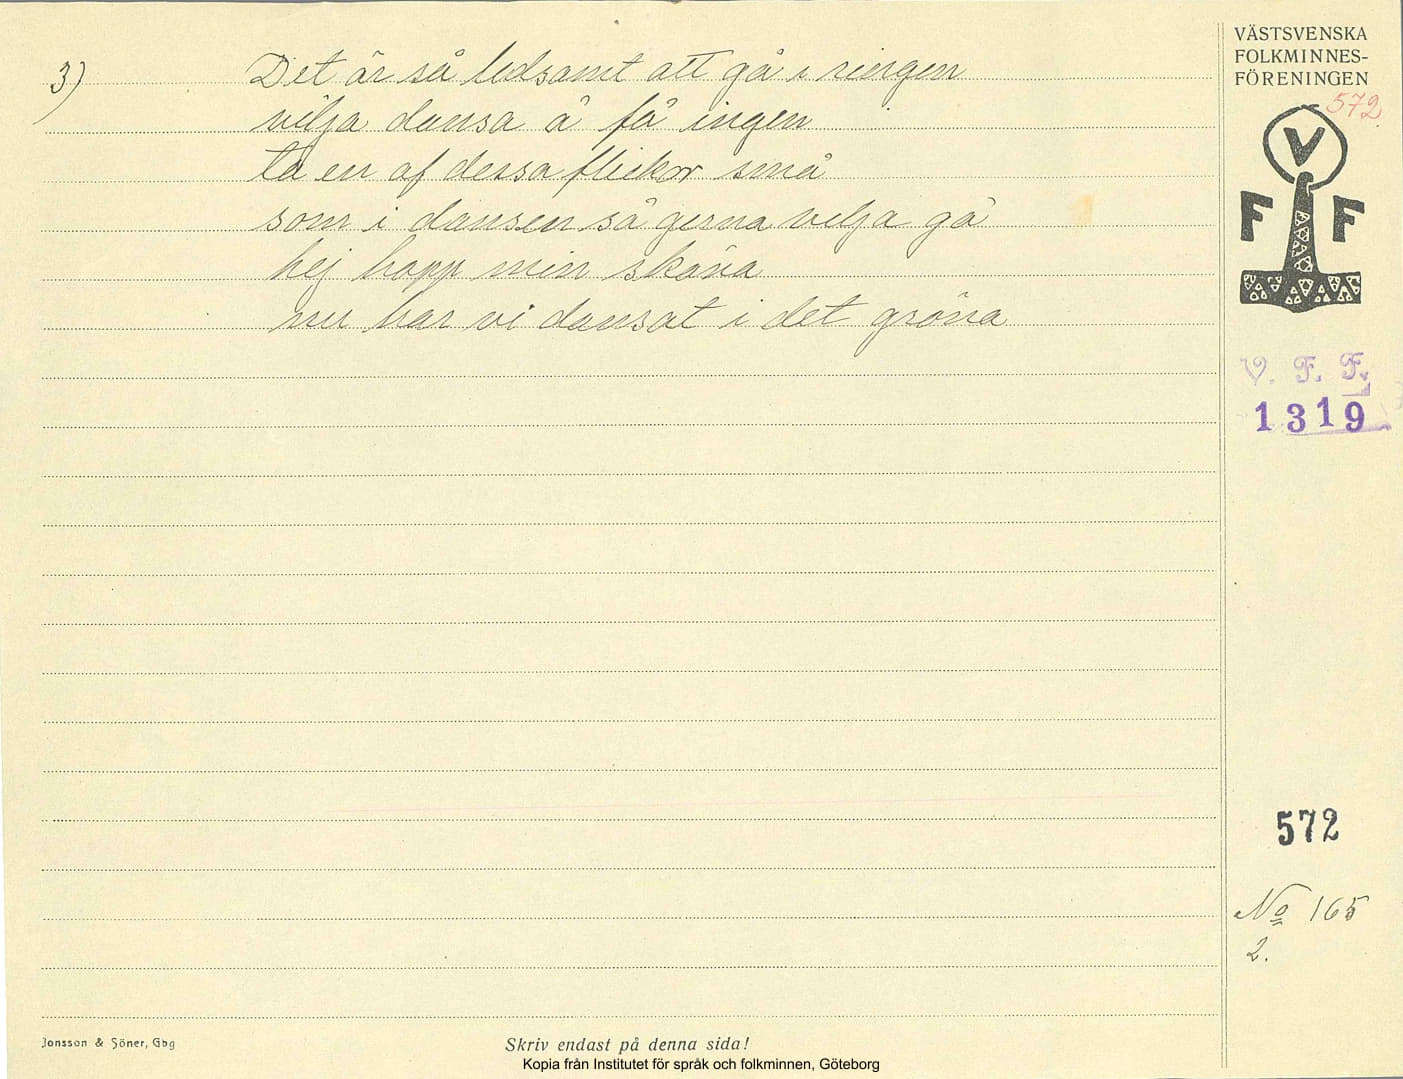 3) Det är så ledsamt att gå i ringen
vilja dansa å få ingen
ta en af dessa flickor små
som i dansen så gerna velja gå
hej hopp min sköna
nu har vi dansat i det gröna
VÄSTSVENSKA
FOLKMINNES-
FÖRENINGEN
572
V
F F
V. F. F.
1319
572
No 165
2.
Jonsson & Söner, Gbg
Skriv endast på denna sida!
Kopia från Institutet för språk och folkminnen, Göteborg